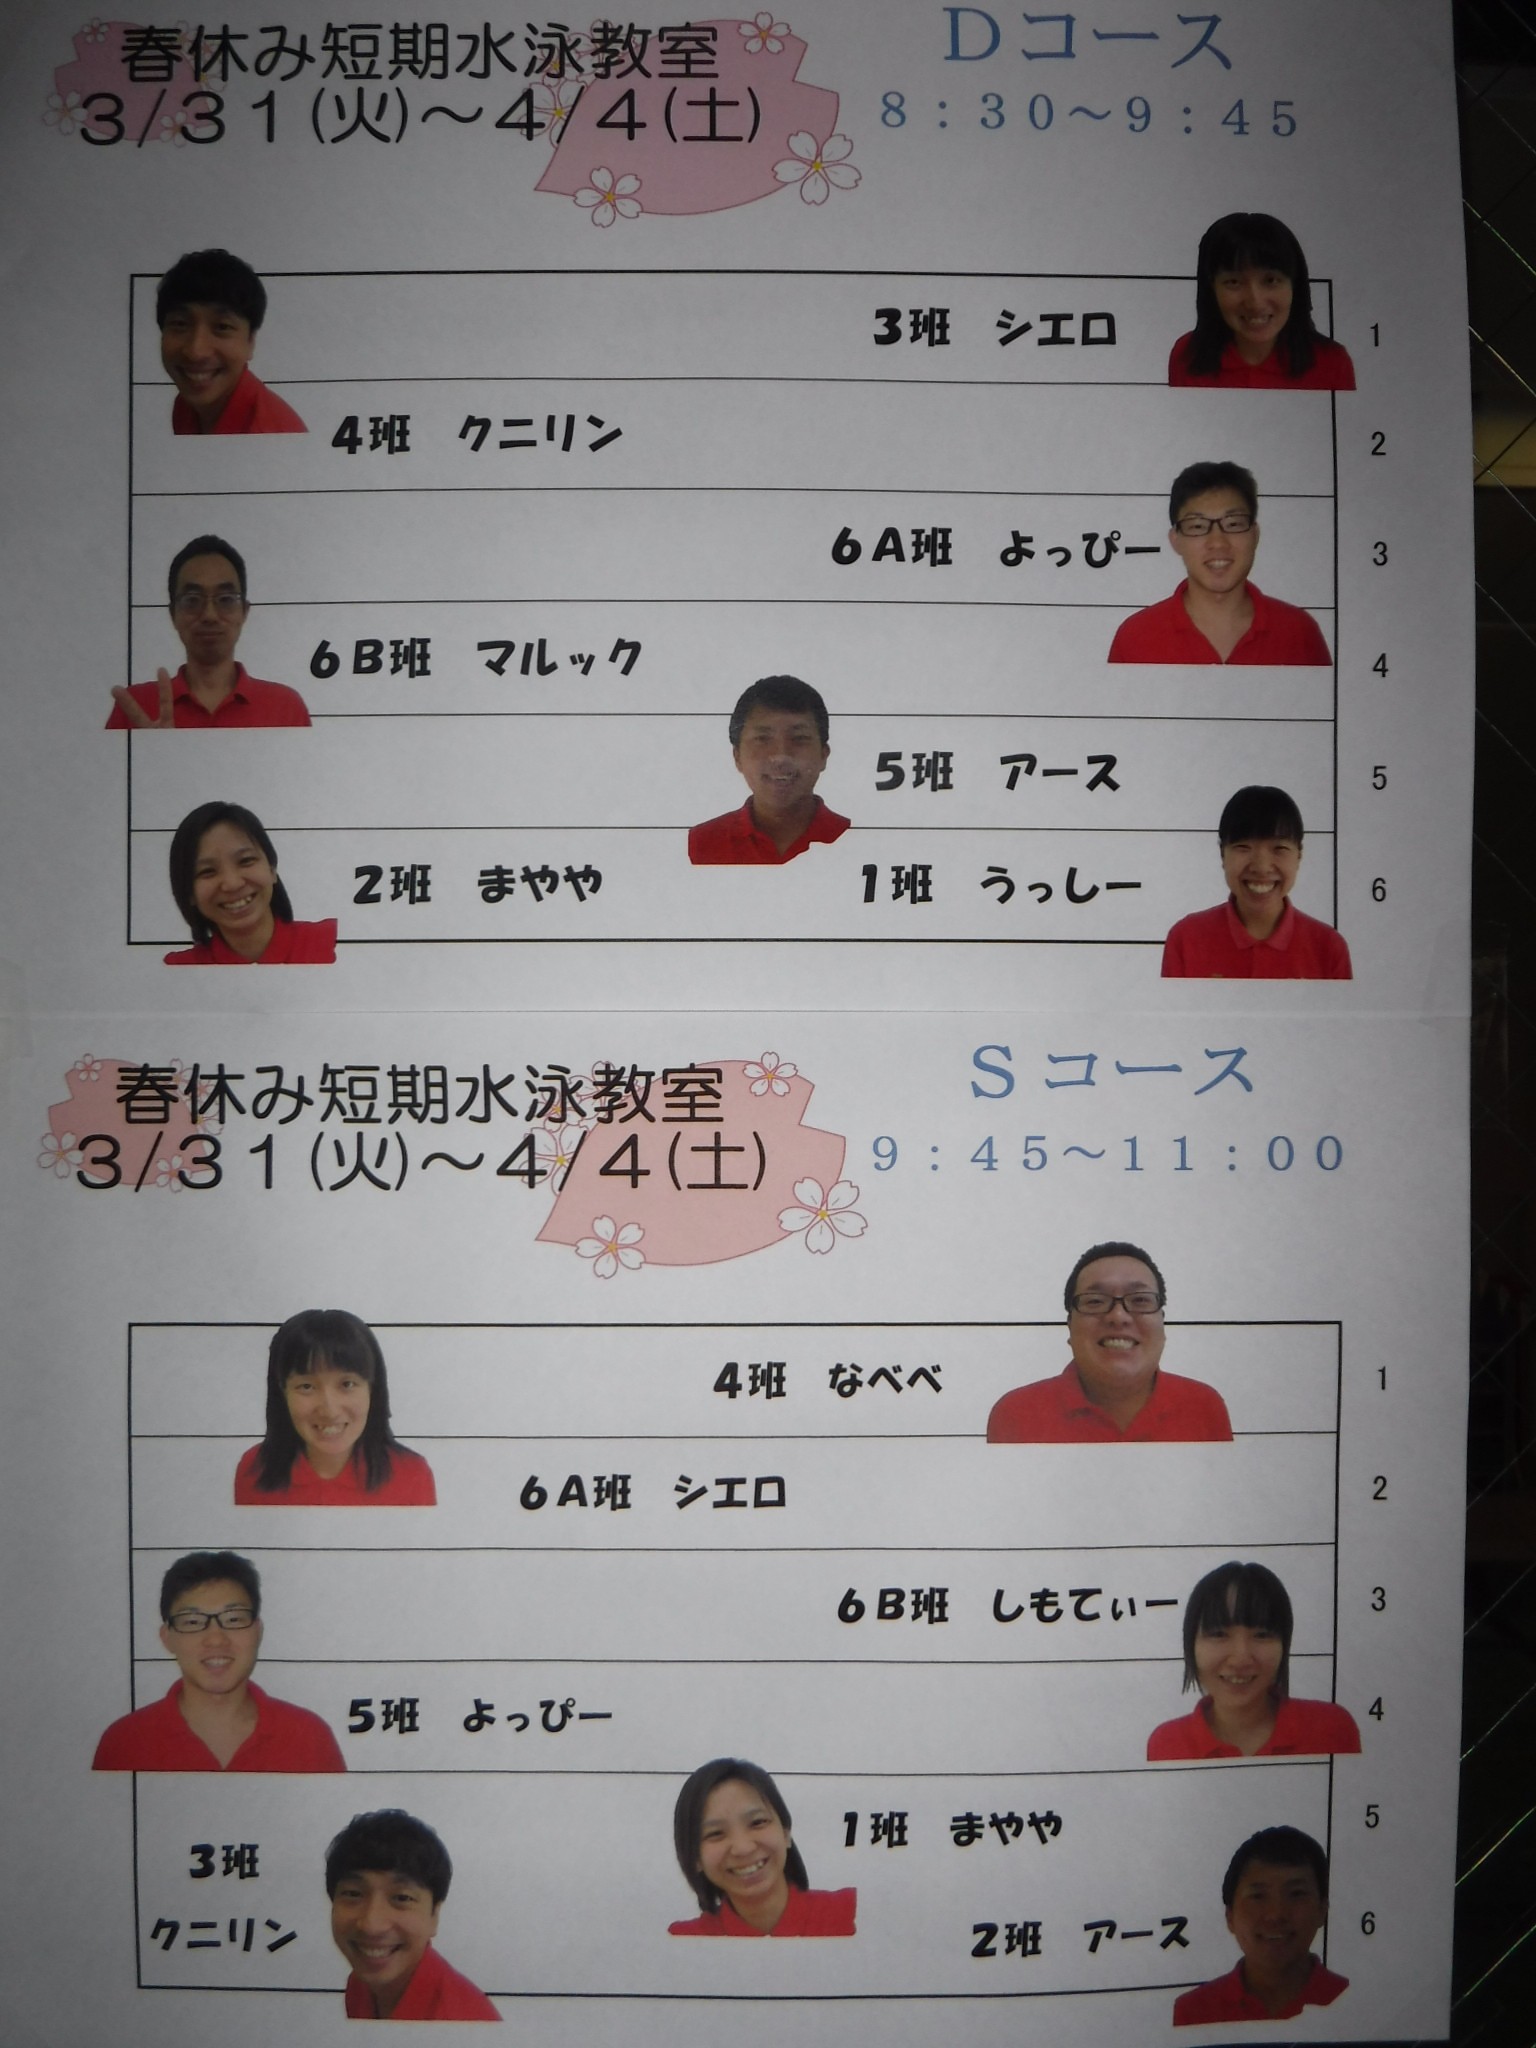 春休み短期水泳教室
３/３１(火)～４/４(土)
Ｄコース
８：３０～９：４５
３班　シエロ
1
４班　クニリン
2
６Ａ班　よっぴー
3
６Ｂ班　マルック
4
５班　アース
5
２班　まやや
１班　うっしー
6
春休み短期水泳教室
３/３１(火)～４/４(土)
Ｓコース
９：４５～１１：００
４班　なべべ
1
６Ａ班　シエロ
2
６Ｂ班　しもてぃー
3
５班　よっぴー
4
３班
クニリン
１班　まやや
5
２班　アース
6